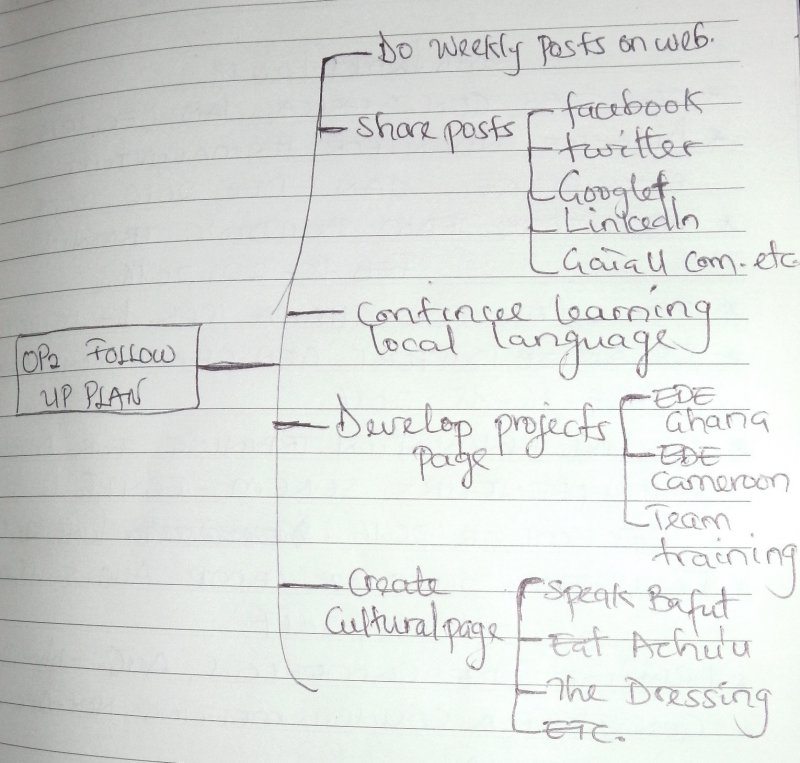 Do weekly posts on web.
Share posts
facebook
twitter
Google+
LinkedIn
GaiaU com. etc.
Continue learning
local language
OP2 FOLLOW
UP PLAN
Develop projects
page
EDE
Ghana
EDE
Cameroon
Team
training
Create
Cultural page
Speak Bafut
Eat Achu'u
The Dressing
ETC.